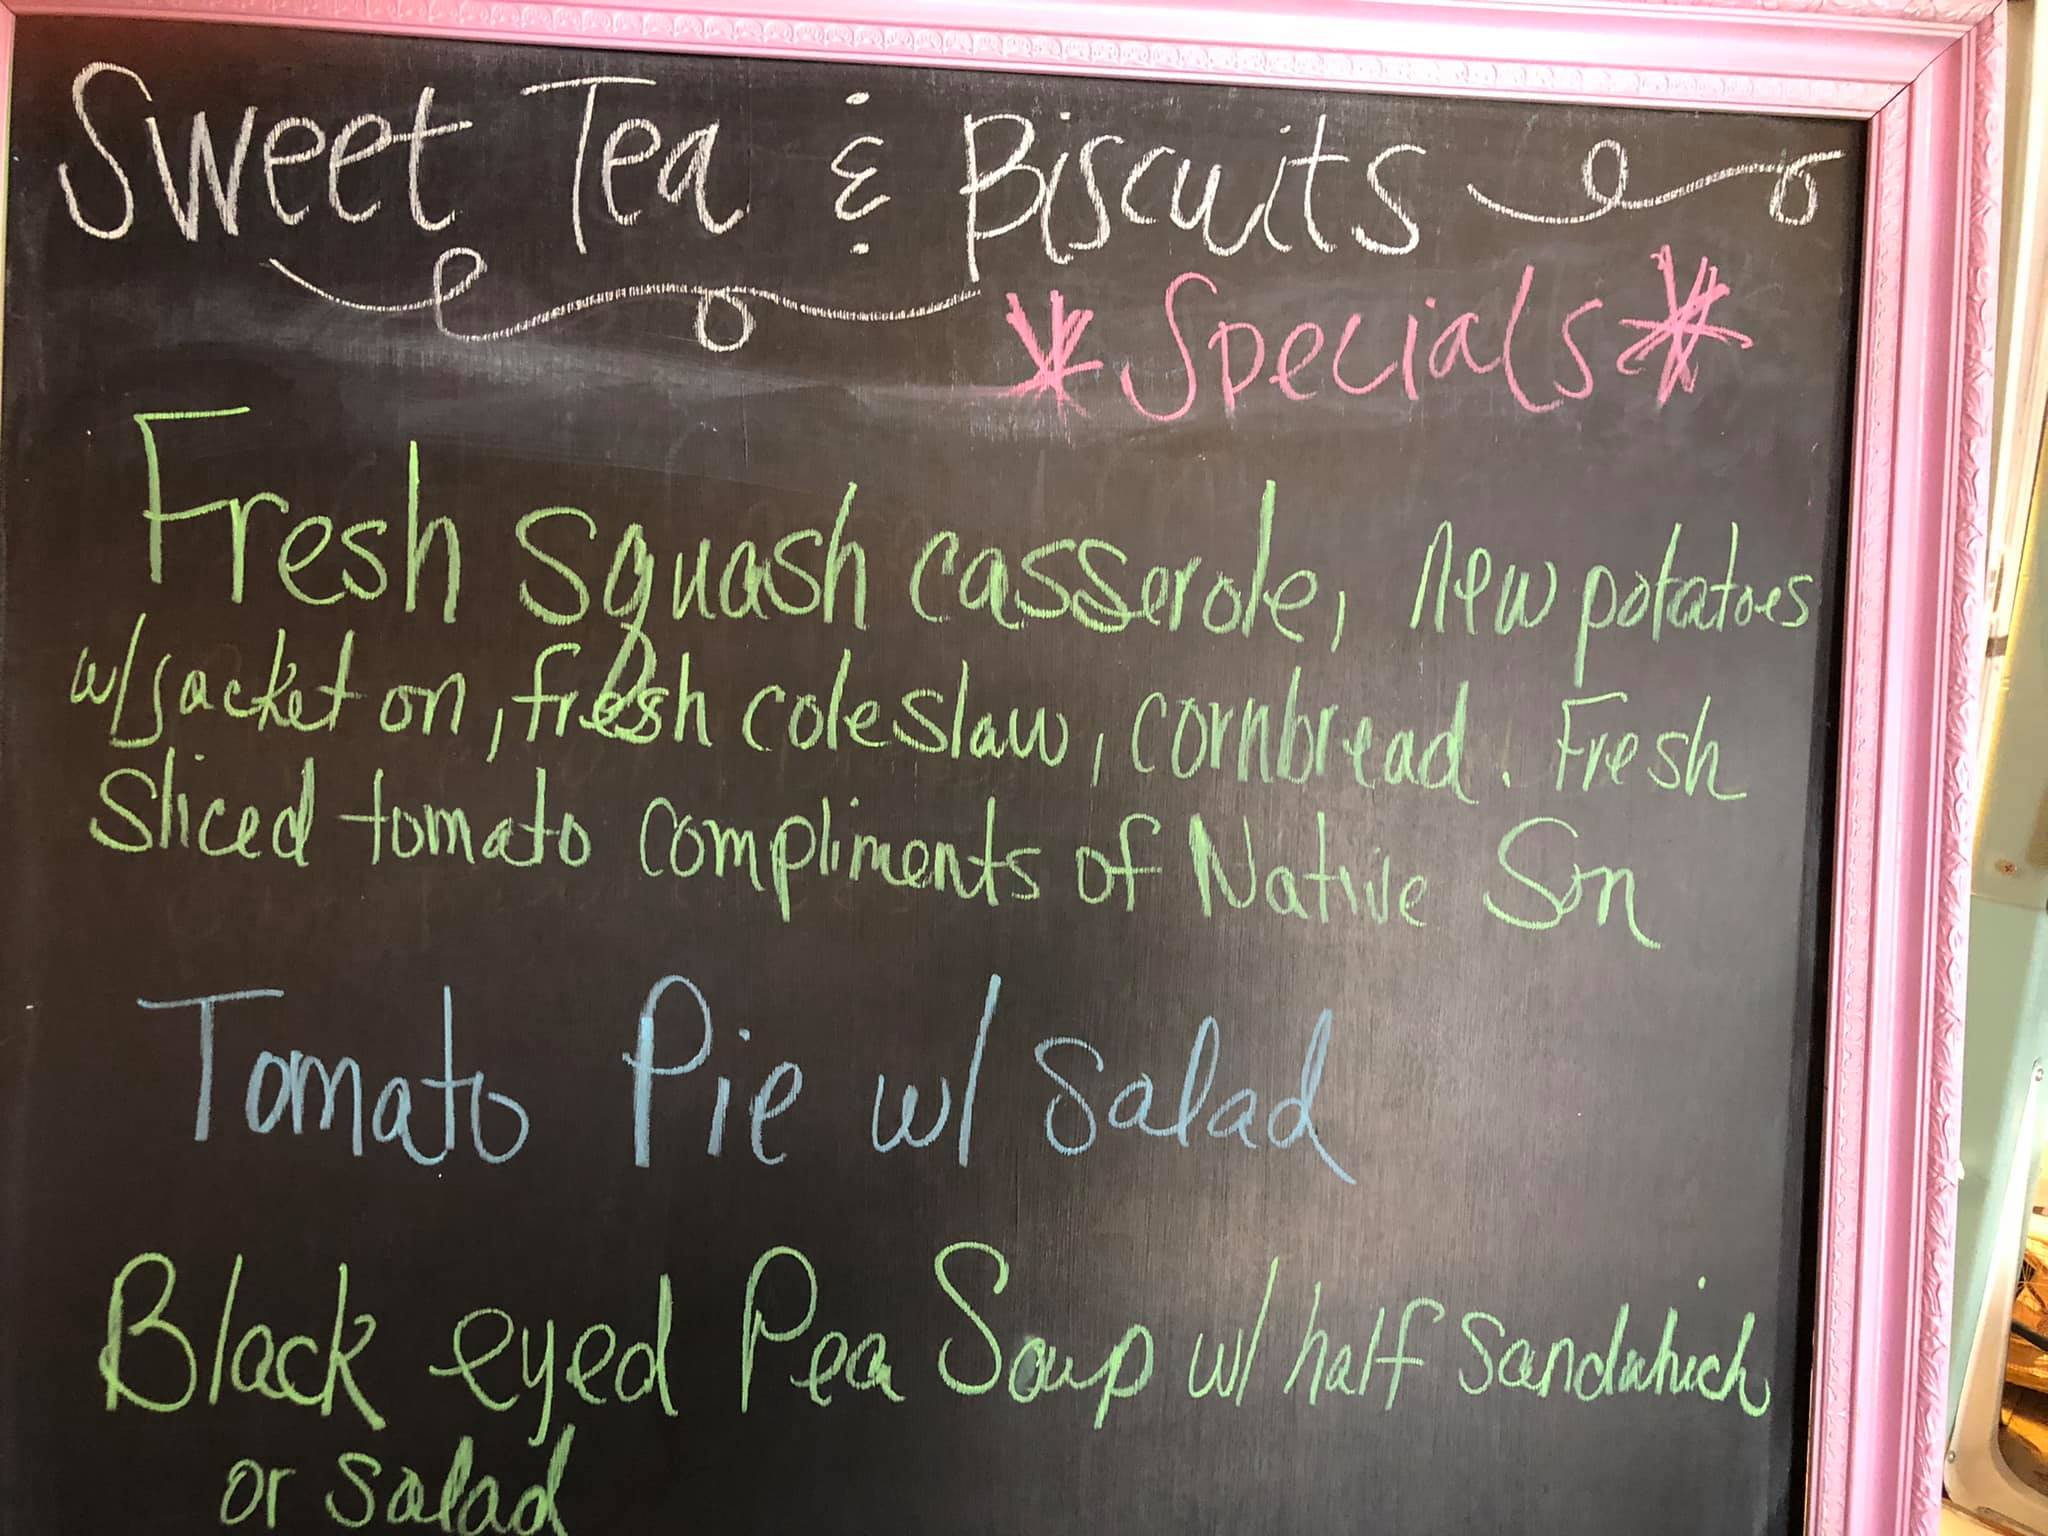 Sweet Tea & Biscuits
*Specials*
Fresh Squash casserole, new potatoes
w/jacket on, fresh coleslaw, cornbread. Fresh
Sliced tomato compliments of Native Son
Tomato Pie w/ Salad
Black eyed Pea Soup w/ half sandwhich
or salad